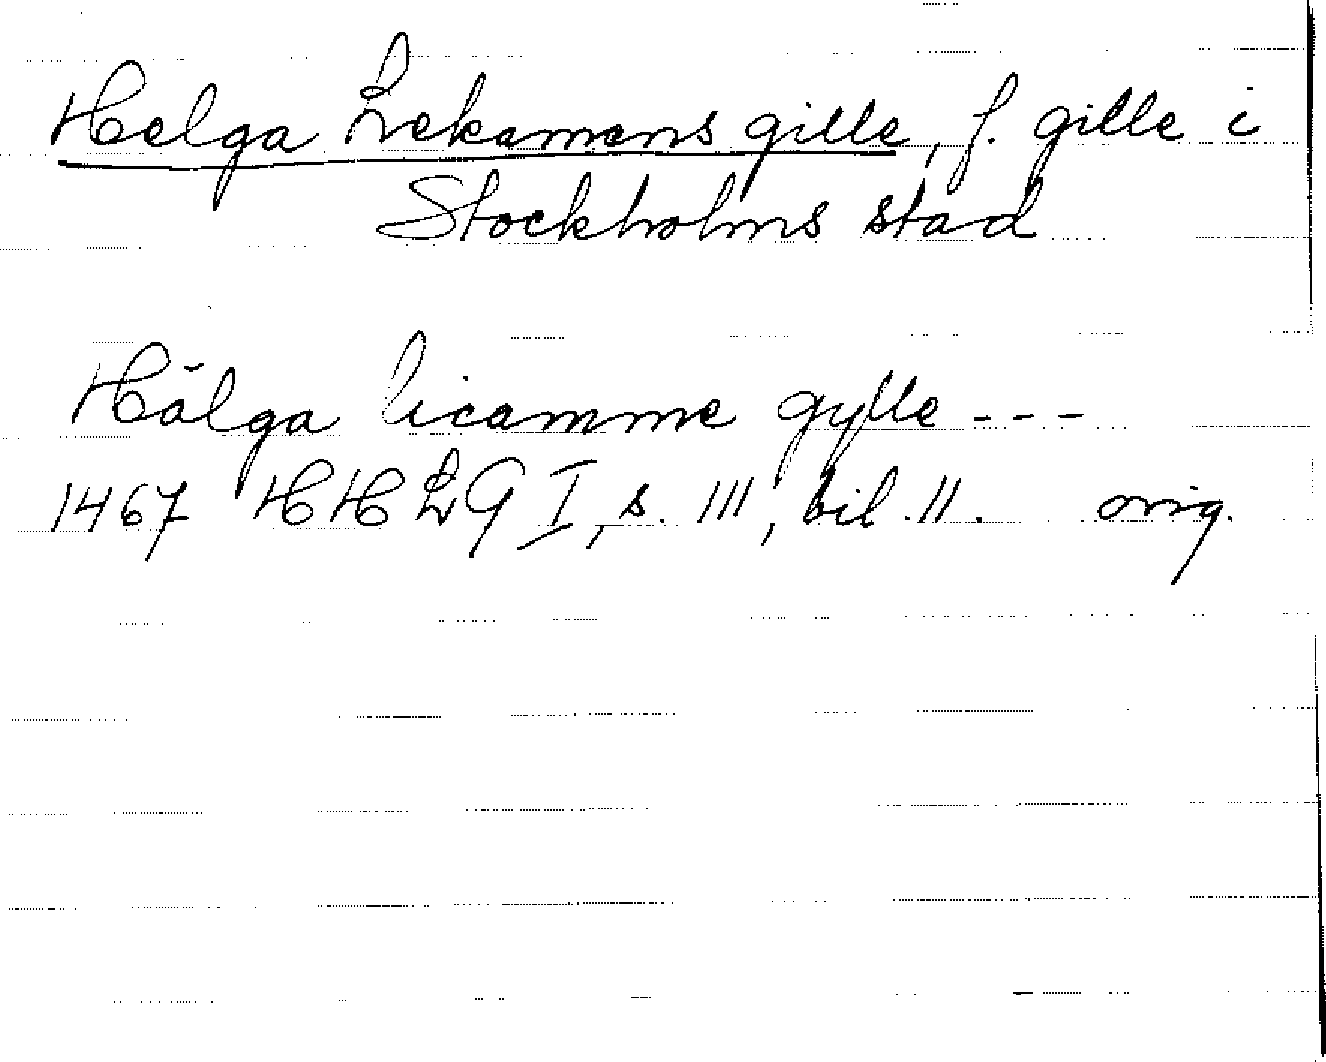 Helga Lekamens gille, f. gille i
Stockholms stad
Hälga licamme gylle ---
1467 HHLG I, s. III, bil. II. orig.